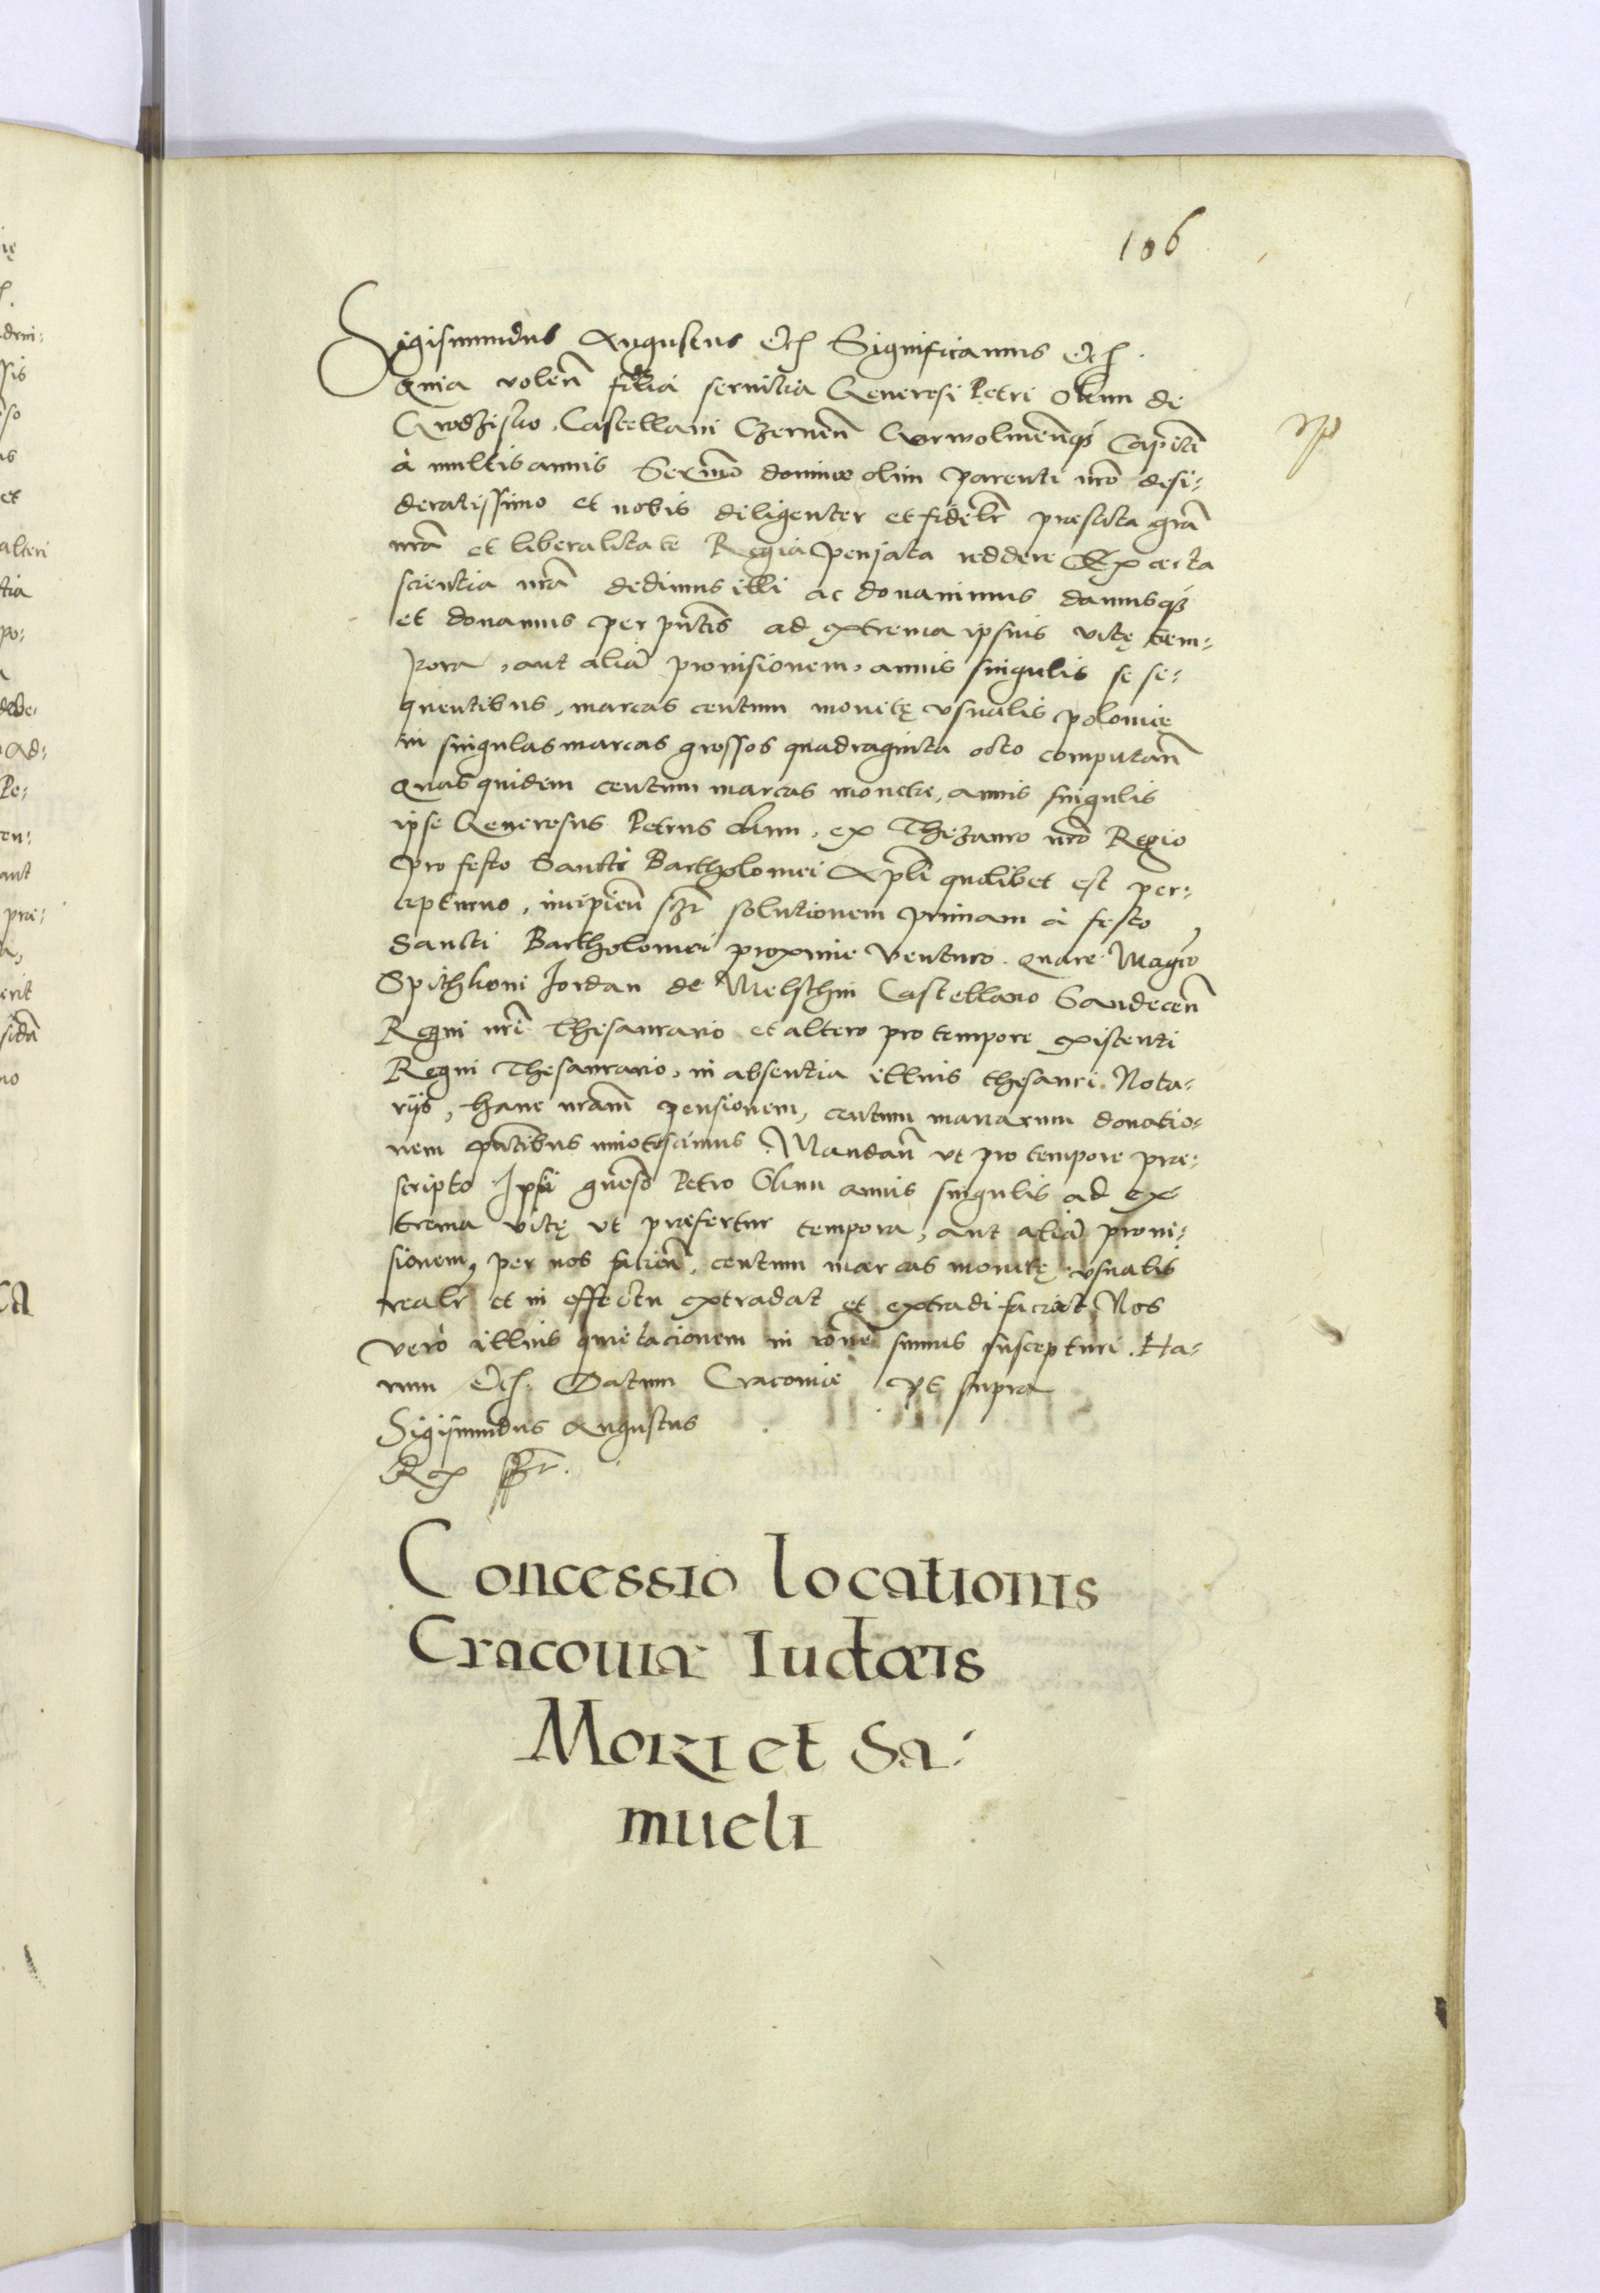 106
Sigismundus Augustus Etc Significamus Etc.
Quia volen̄ fidelia seruitia Generosi Petri Chun de
Grodzisko, Castellani Czernen̄ Capitā
à multis annis Serm̄o domino olim parenti nrō desi:
deratissimo et nobis diligenter et fidelr̄ praestita grā
nrā et liberalitate Regia pensata reddere Ex certa
scientia nrā dedimus illi ac donauimus damusq3
et donamus per pn̄tes ad extrema ipsius vitę tem:
pora, aut aliā prouisionem, annis singulis se se:
quentibus, marcas centum monetę vsualis polonie
in singulas marcas grossos quadraginta octo computan̄
Quas quidem centum marcas monetae, annis singulis
ipse Generosus Petrus Chun, ex Thezauro nrō Regio
pro festo Sancti Bartholomei Apl̄i quolibet est per:
cepturus, incipien̄ solutionem primam à festo
Sancti Bartholomei proxime venturo. Quare Maḡco
Spithkoni Jordan de Melschtin Castellano Sandecen̄
Regni nrī thesaurario et altero pro tempore existenti
Regni Thesaurario, in absentia illius thesauri Nota:
rijs, hanc nrām pensionem, centum marcarum donatio:
nem pn̄tibus innotescimus. Mandan̄ vt pro tempore prae:
scripto Ipsi gn̄eso Petro Chun annis singulis ad ex
trema vitę vt praefertur tempora, aut aliā proui:
sionem, per nos facien̄, centum marcas monetę vsualis
realr̄ et in effectu extradat et extradi faciat, Nos
vero illius quietacionem in rōnem sumus suscepturi. Ha:
rum Etc. Datum Cracouie vt supra
Sigismundus Augustus
Rex
Concessio locationis
Cracouiæ Iudæis
Mori et Sa:
mueli